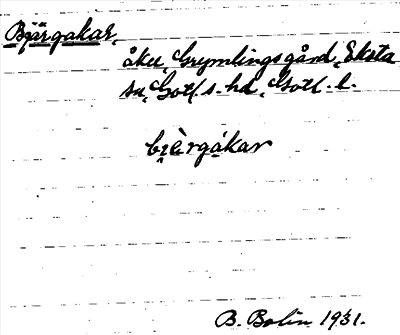 Bjärgakar,
åker, Grymlingsgård, Eksta
sn, Gotl. s. hd, Gotl. l.
bi̯èrgákar
B. Bolin 1931.